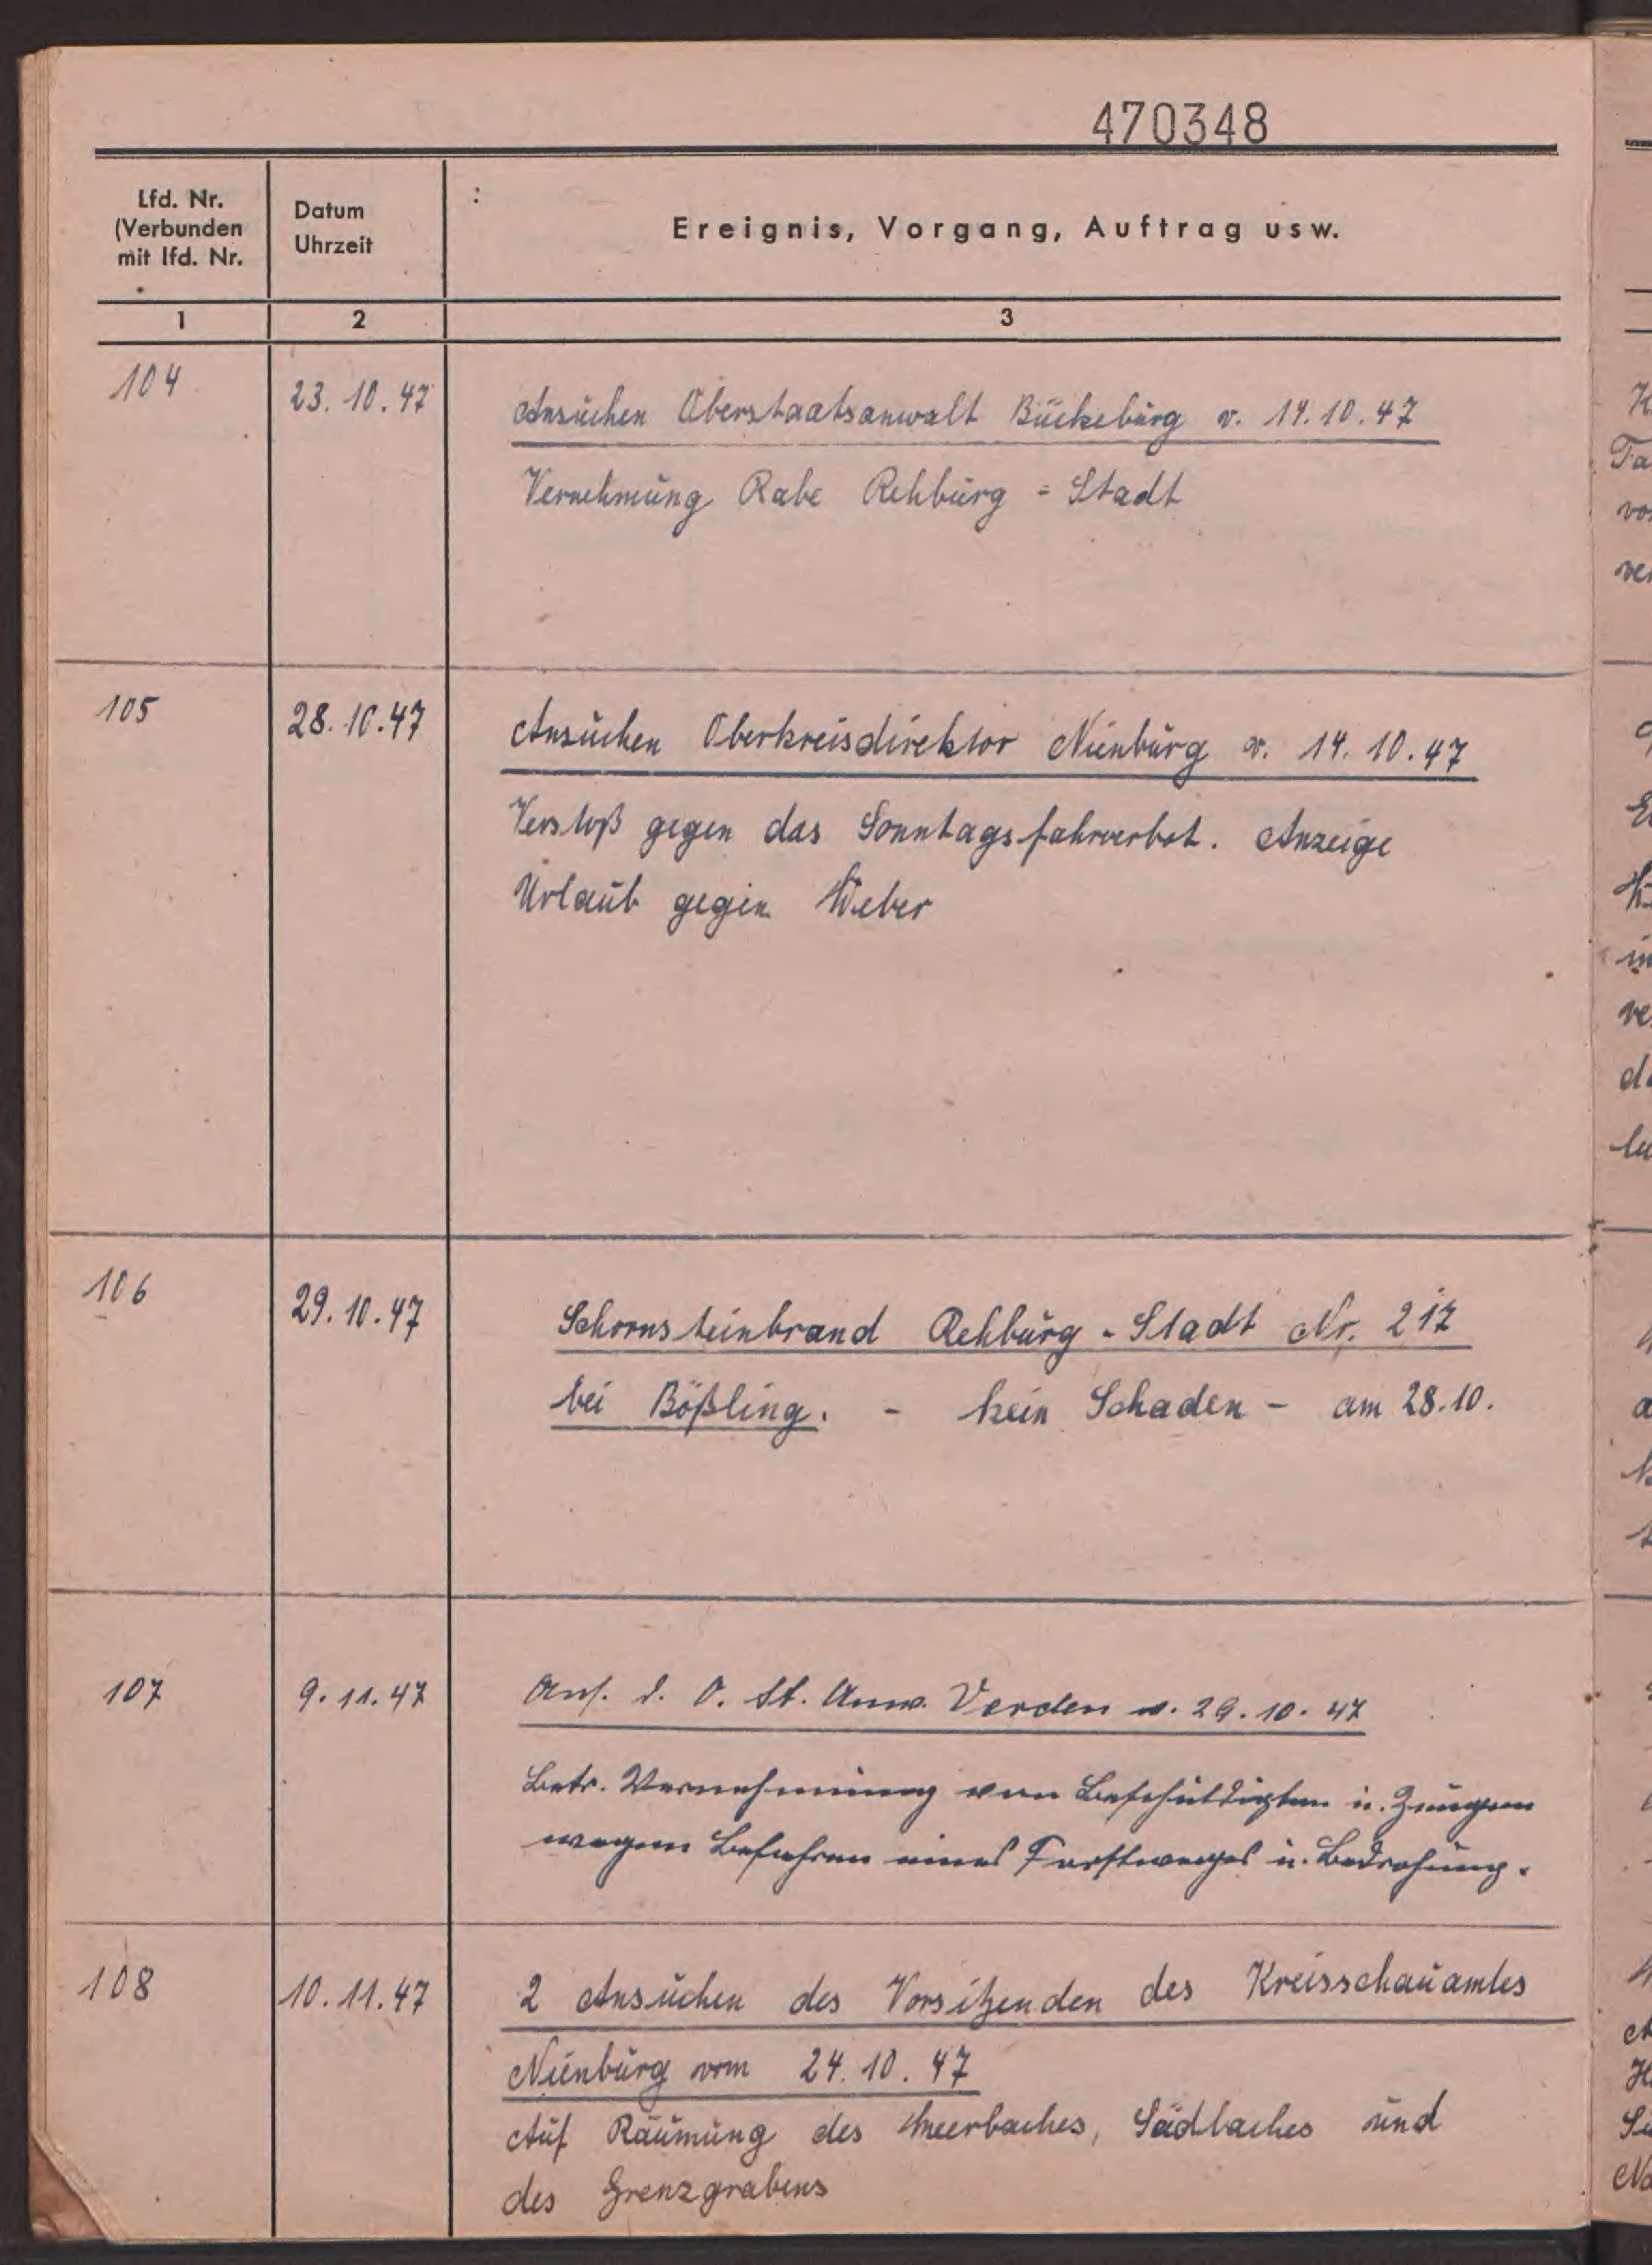 470348
Lfd. Nr.
(Verbunden
mit lfd. Nr.
Datum
Uhrzeit
Ereignis, Vorgang, Auftrag usw.
1 2 3
104 23.10.47 Ansuchen Oberstaatsanwalt Bückeburg v. 14.10.47
Vernehmung Rabe Rehburg = Stadt
105 28.10.47 Ansuchen Oberkreisdirektor Nienburg v. 14.10.47
Verstoß gegen das Sonntagsfahrverbot. Anzeige
Urlaub gegen Weber
106 29.10.47 Schornsteinbrand Rehburg-Stadt Nr. 217
bei Bößling. - kein Schaden - am 28.10.
107 9.11.47 Ans. d. O. St. Anw. Verden v. 29.10.47
Betr. Vernehmung von Beschuldigten u. Zeugen
wegen Befahren eines Forstweges u. Bedrohung.
108 10.11.47 2 Ansuchen des Vorsitzenden des Kreisschauamtes
Nienburg vom 24.10.47
Auf Räumung des Meerbaches, Südbaches und
des Grenzgrabens